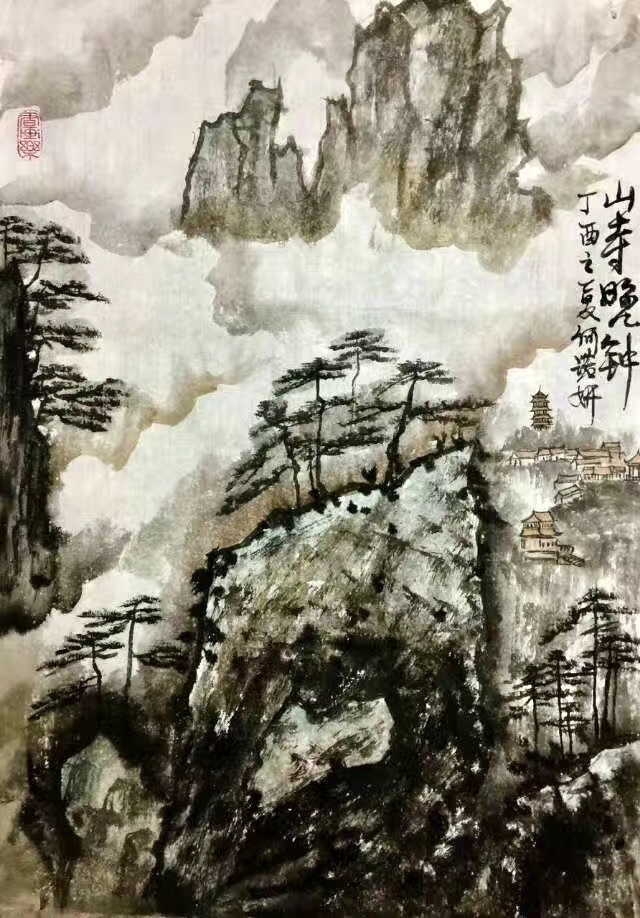 山寺晚钟
丁酉之夏何诺妍